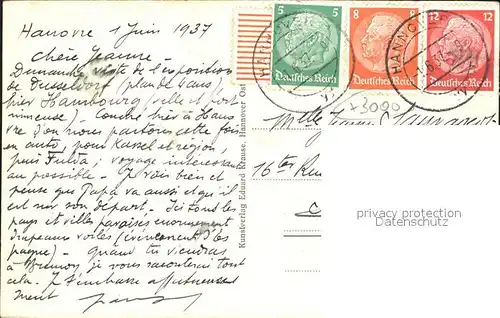 Hanovre 1 Juin 1937
Chère Jeanne
Dimanche visite de l'exposition
de Dusseldorf (plan de 4 ans)
hier Hambourg (ville et port
immense) – Couché hier à Hano
vre d'où nous partons cette fois
en auto, pour Kassel et région,
puis Fulda; voyage intéressant
au possible – Je vais bien et
pense que Papa va aussi et qu'il
est sur son départ. Ici tous les
pays et villes pavoisés énormément
drapeaux voilés (événement d'Es
pagne) – Quand tu viendras
à je vous raconterai tout
cela. Je t'embrasse affectueuse
ment
Kunstverlag Eduard Krause, Hannover Ost
5 5
Deutsches Reich
8 8
Deutsches Reich
12 12
Deutsches Reich
HANNOVER
HANNOVER
+3000
Mlle
16 ter Rue
privacy protection
Datenschutz